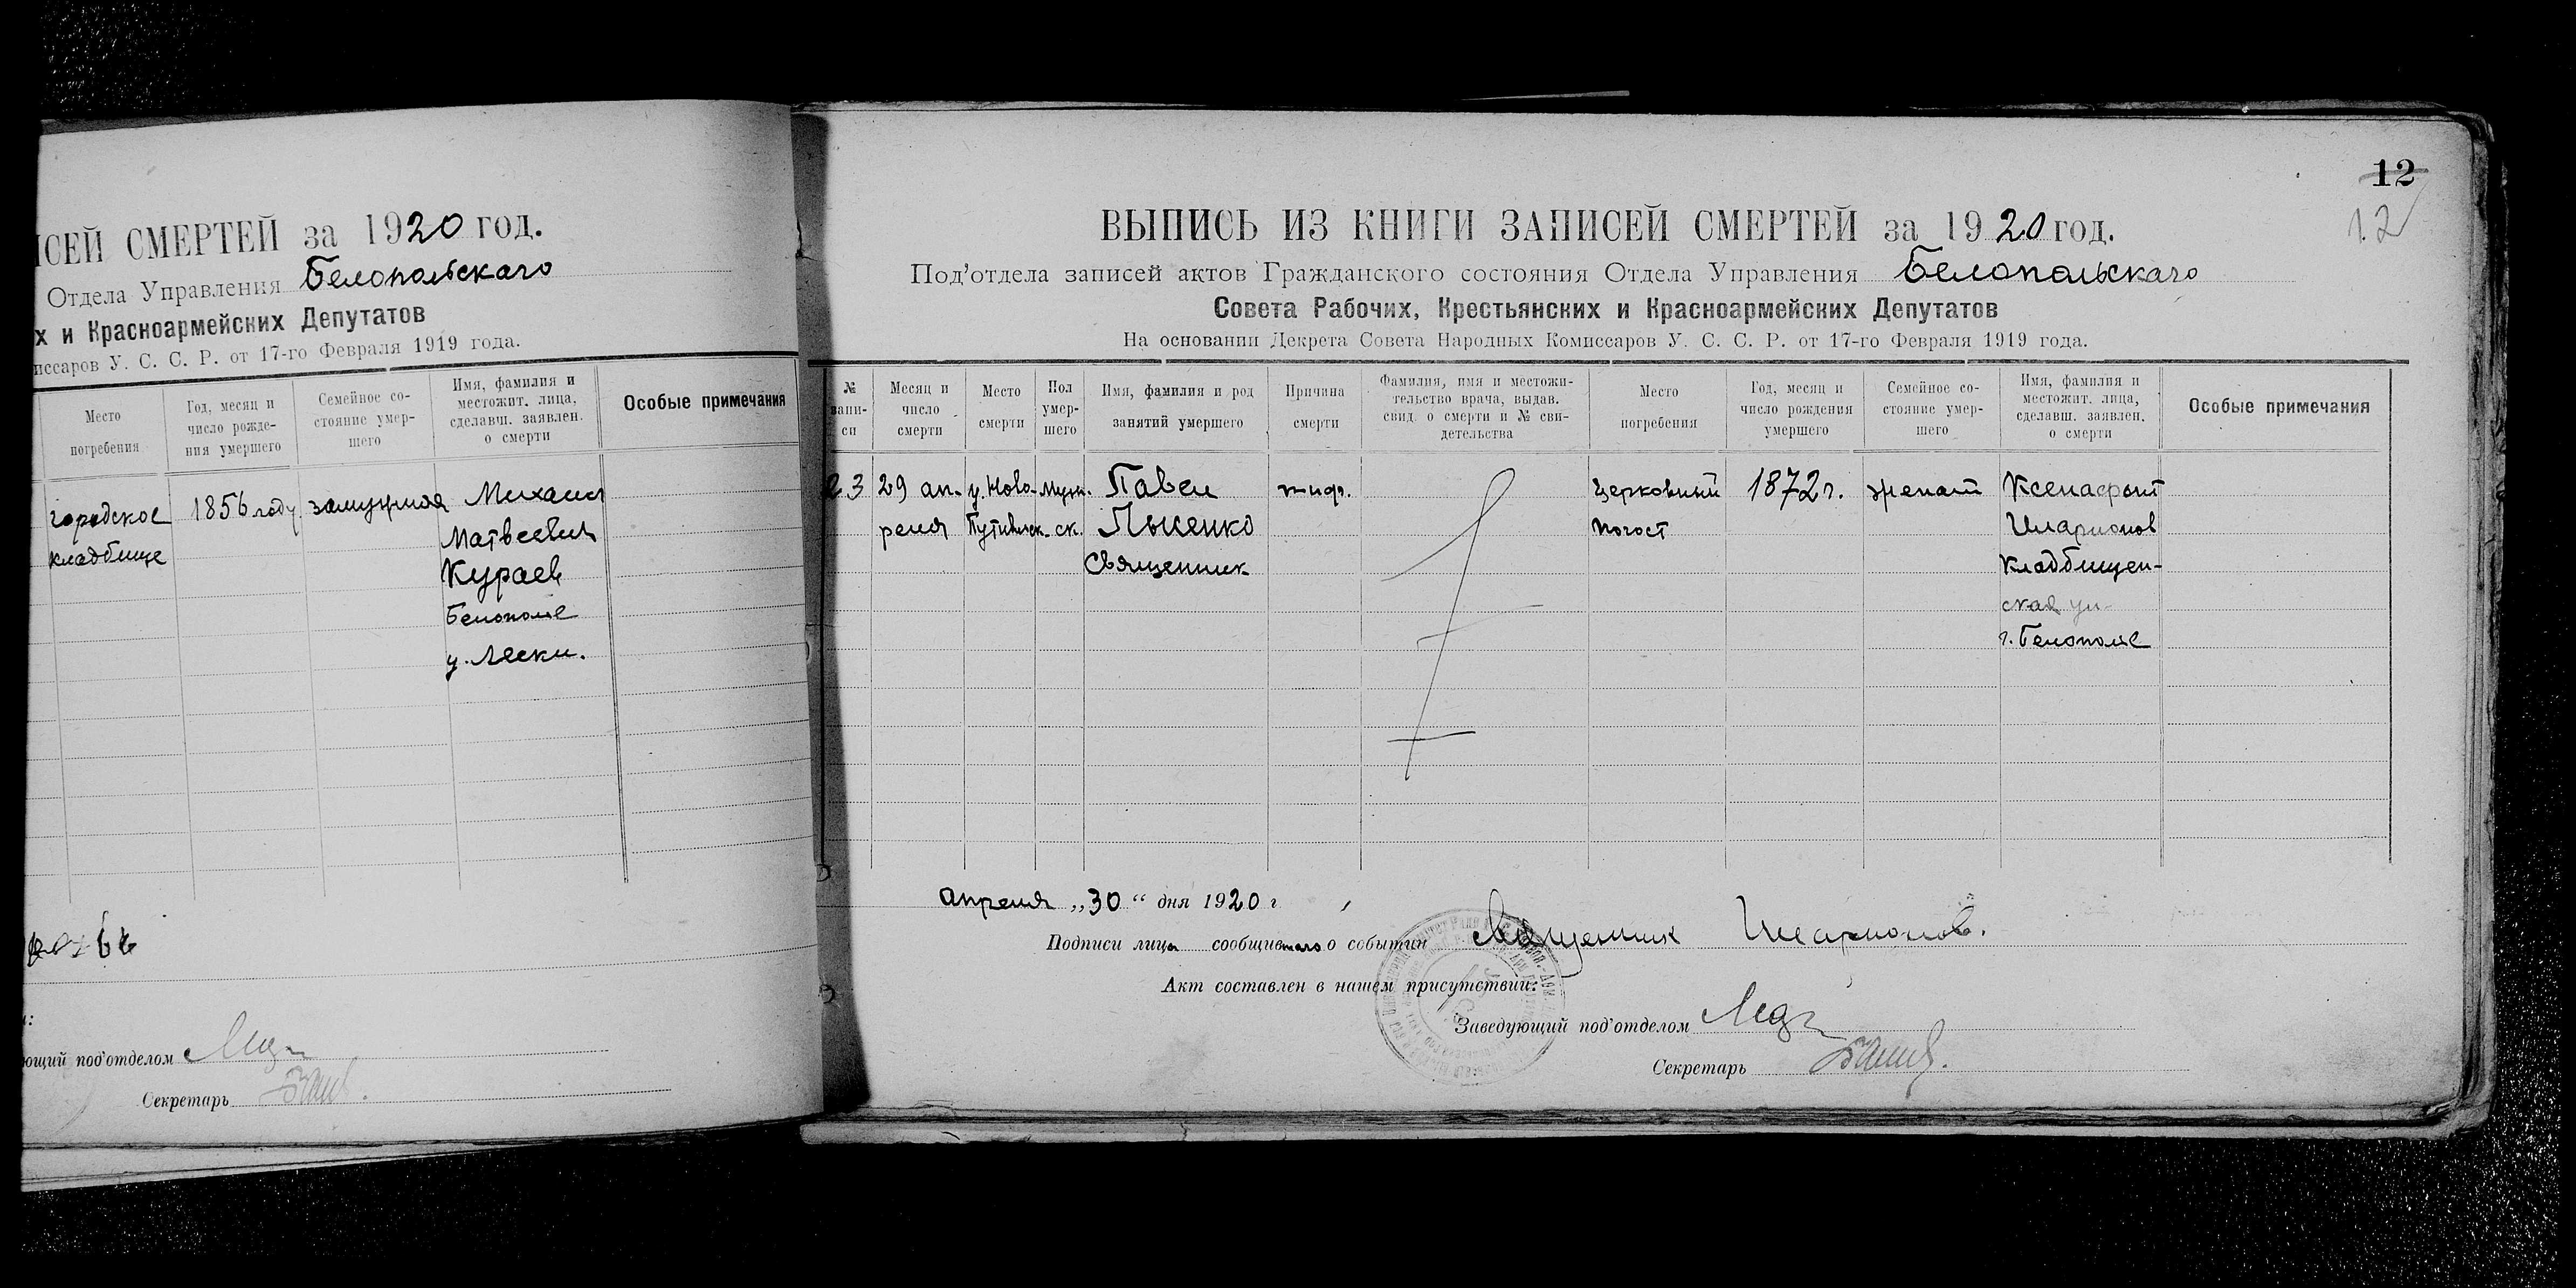 ИСЕЙ СМЕРТЕЙ за 1920 год.
Отдела Управления Белопольскаго
х и Красноармейских Депутатов
миссаров У. С. С. Р. от 17-го Февраля 1919 года.
Место погребения
Год, месяц и число рожде-ния умершего
Семейное со-стояние умер-шего
Имя, фамилия и местожит. лица, сделавш. заявлен. о смерти
Особые примечания
городское 1856 году замужняя Михаил
кладбище Матвеевич
Кураев
Белополье
у. Лески.
ющий под'отделом
Секретарь
12
12
ВЫПИСЬ ИЗ КНИГИ ЗАПИСЕЙ СМЕРТЕЙ за 1920 год.
Под'отдела записей актов Гражданского состояния Отдела Управления Белопольскаго
Совета Рабочих, Крестьянских и Красноармейских Депутатов
На основании Декрета Совета Народных Комиссаров У. С. С. Р. от 17-го Февраля 1919 года.
№ запи-си
Месяц и число смерти
Место смерти
Пол умер-шего
Имя, фамилия и род занятий умершего
Причина смерти
Фамилия, имя и местожи-тельство врача, выдав. свид. о смерти и № сви-детельства
Место погребения
Год, месяц и число рождения умершего
Семейное со-стояние умер-шего
Имя, фамилия и местожит. лица, сделавш. заявлен. о смерти
Особые примечания
23 29 ап- у. Ново- Муж. Павел тиф. Церковный 1872 г. женат Ксенафонт
реля Путивльск. ск. Лысенко погост Иларионов
Священник Кладбищен-
ская ул-
г. Белополье
Апреля „30“ дня 1920 г
Подписи лица сообщившаго о событии Священник Иларионов.
Акт составлен в нашем присутствии:
Заведующий под'отделом
Секретарь